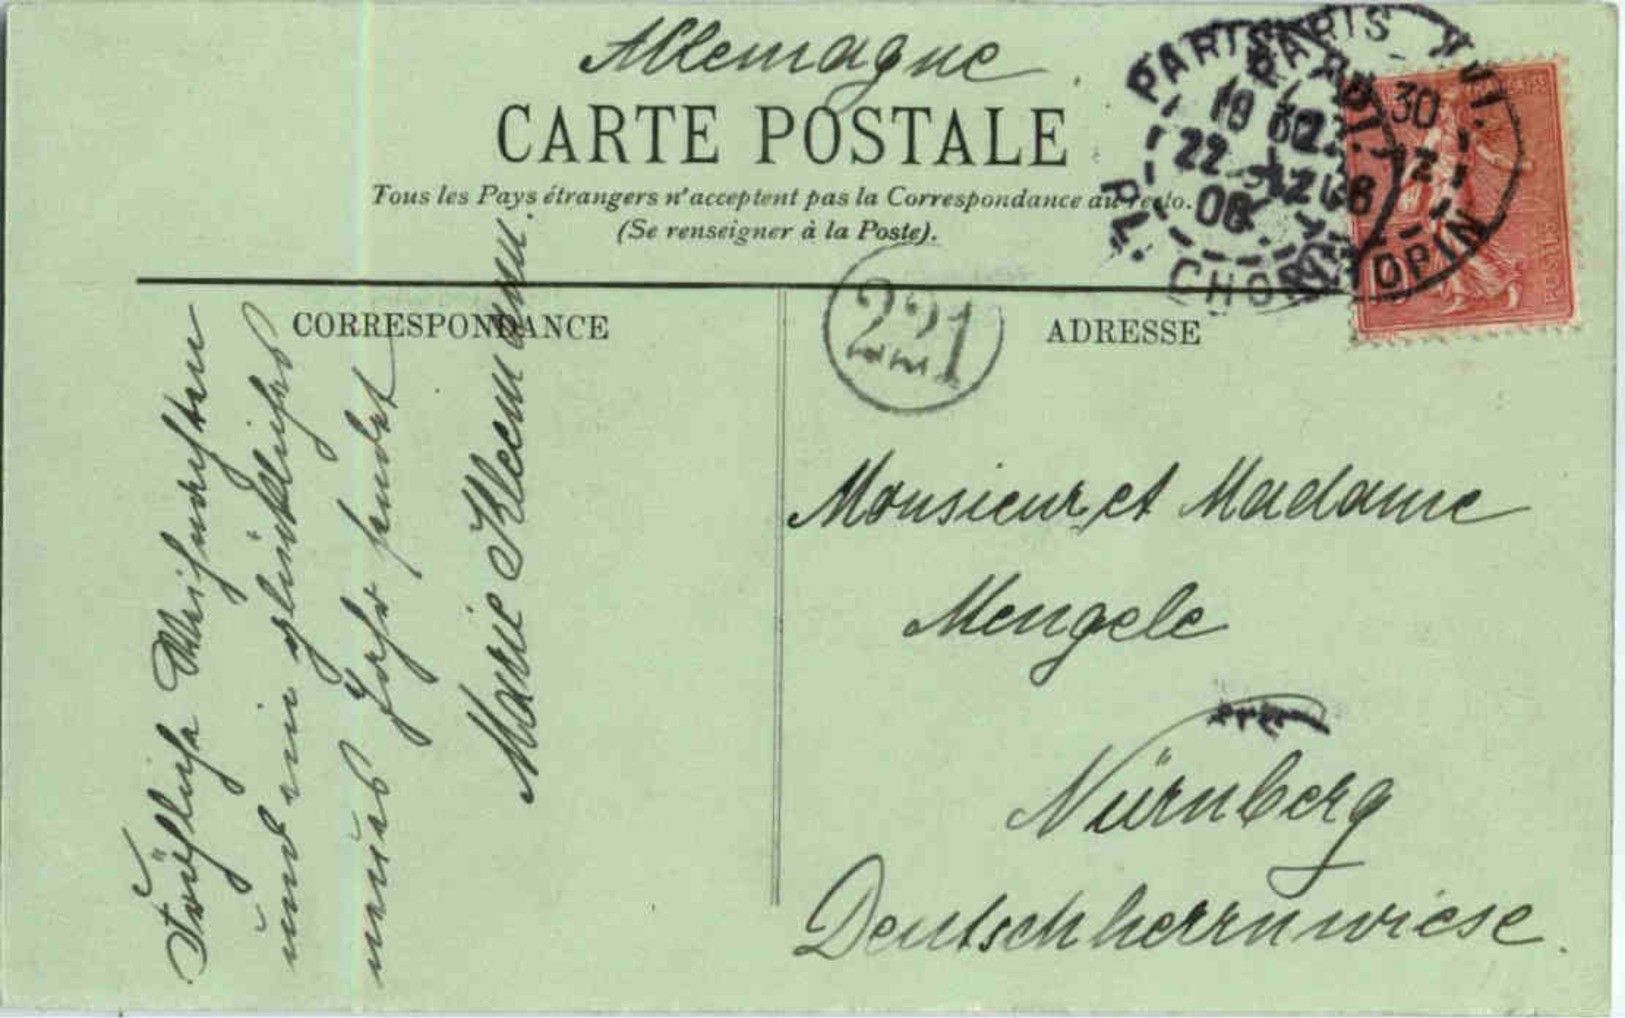 Allemagne
CARTE POSTALE
Tous les Pays étrangers n'acceptent pas la Correspondance au recto.
(Se renseigner à la Poste).
PARIS XVI.
PARIS XVI.
19 30
22 - 12
06
30
12
PL. CHOPIN
CHOPIN
221
CORRESPONDANCE
ADRESSE
Fröhliche Weihnachten
und ein glückliches
neues Jahr sendet
Marie Kleemann.
Monsieur et Madame
Mengele
Nürnberg
Deutschherrnwiese.
POSTES